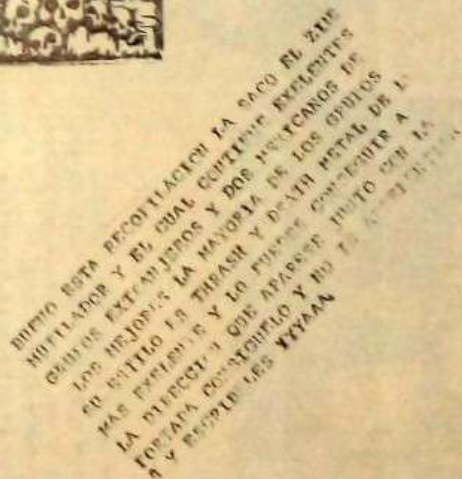 BUENO ESTA RECOPILACION LA SACO EL ZINE
MUTILADOR Y EL CUAL CONTIENE EXELENTES
GRUPOS EXTRANJEROS Y DOS MEXICANOS DE
LOS MEJORES LA MAYORIA DE LOS GRUPOS
SU ESTILO ES THRASH Y DEATH METAL DE L
MAS EXELENTE Y LO PUEDES CONSEGUIR A
LA DIRECCION QUE APARECE JUNTO CON LA
PORTADA CONSIGUELO Y NO TE
Y ESCRIBELES YYYAAA